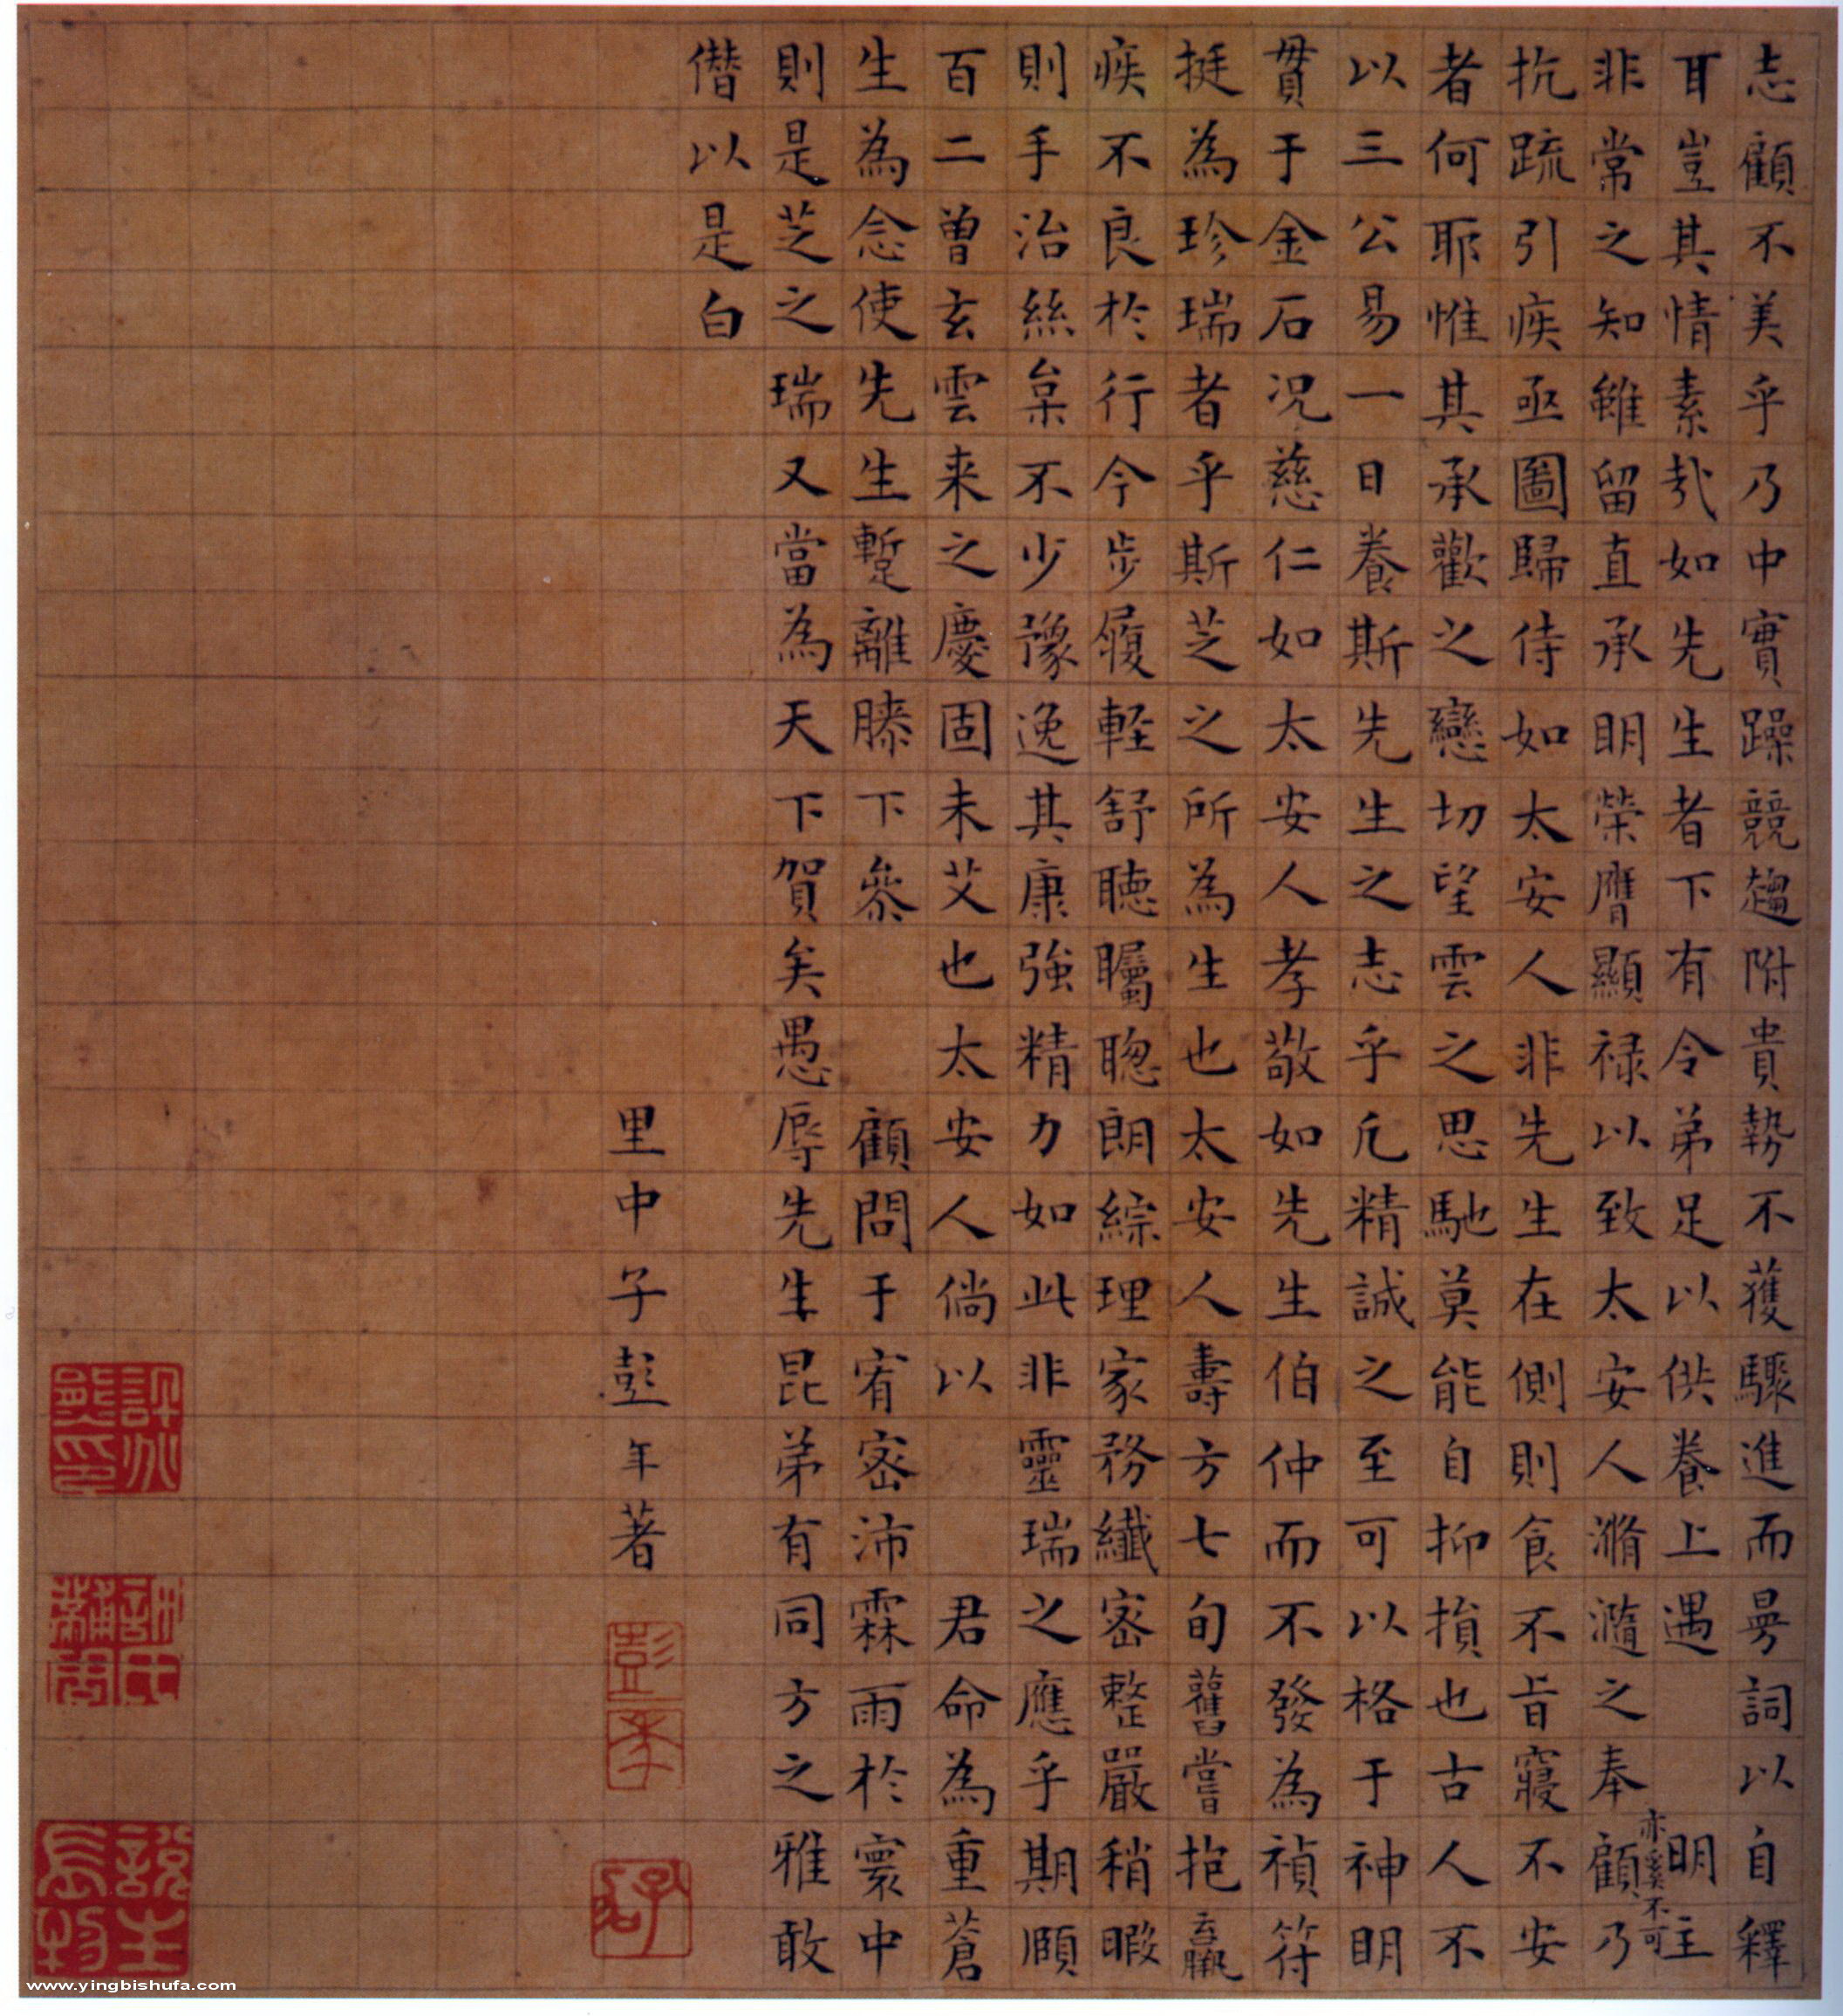 志顧不美乎乃中實躁競趨附貴勢不獲驟進而曼詞以自釋
耳豈其情素哉如先生者下有令弟足以供養上遇明主
亦奚不可
非常之知雖留直承明榮膺顯祿以致太安人滫瀡之奉顧乃
抗疏引疾亟圖歸侍如太安人非先生在側則食不旨寢不安
者何耶惟其承歡之戀切望雲之思馳莫能自抑損也古人不
以三公易一日養斯先生之志乎凡精誠之至可以格于神明
貫于金石況慈仁如太安人孝敬如先生伯仲而不發為禎符
挺為珍瑞者乎斯芝之所為生也太安人壽方七旬舊嘗抱羸
疾不良於行今步履輕舒聽矚聰朗綜理家務纖密整嚴稍暇
則手治絲枲不少豫逸其康強精力如此非靈瑞之應乎期頤
百二曾玄雲来之慶固未艾也太安人倘以君命為重蒼
生為念使先生蹔離膝下參顧問于宥密沛霖雨於寰中
則是芝之瑞又當為天下賀矣愚辱先生昆弟有同方之雅敢
僭以是白
里中子彭年著
彭年
www.yingbishufa.com